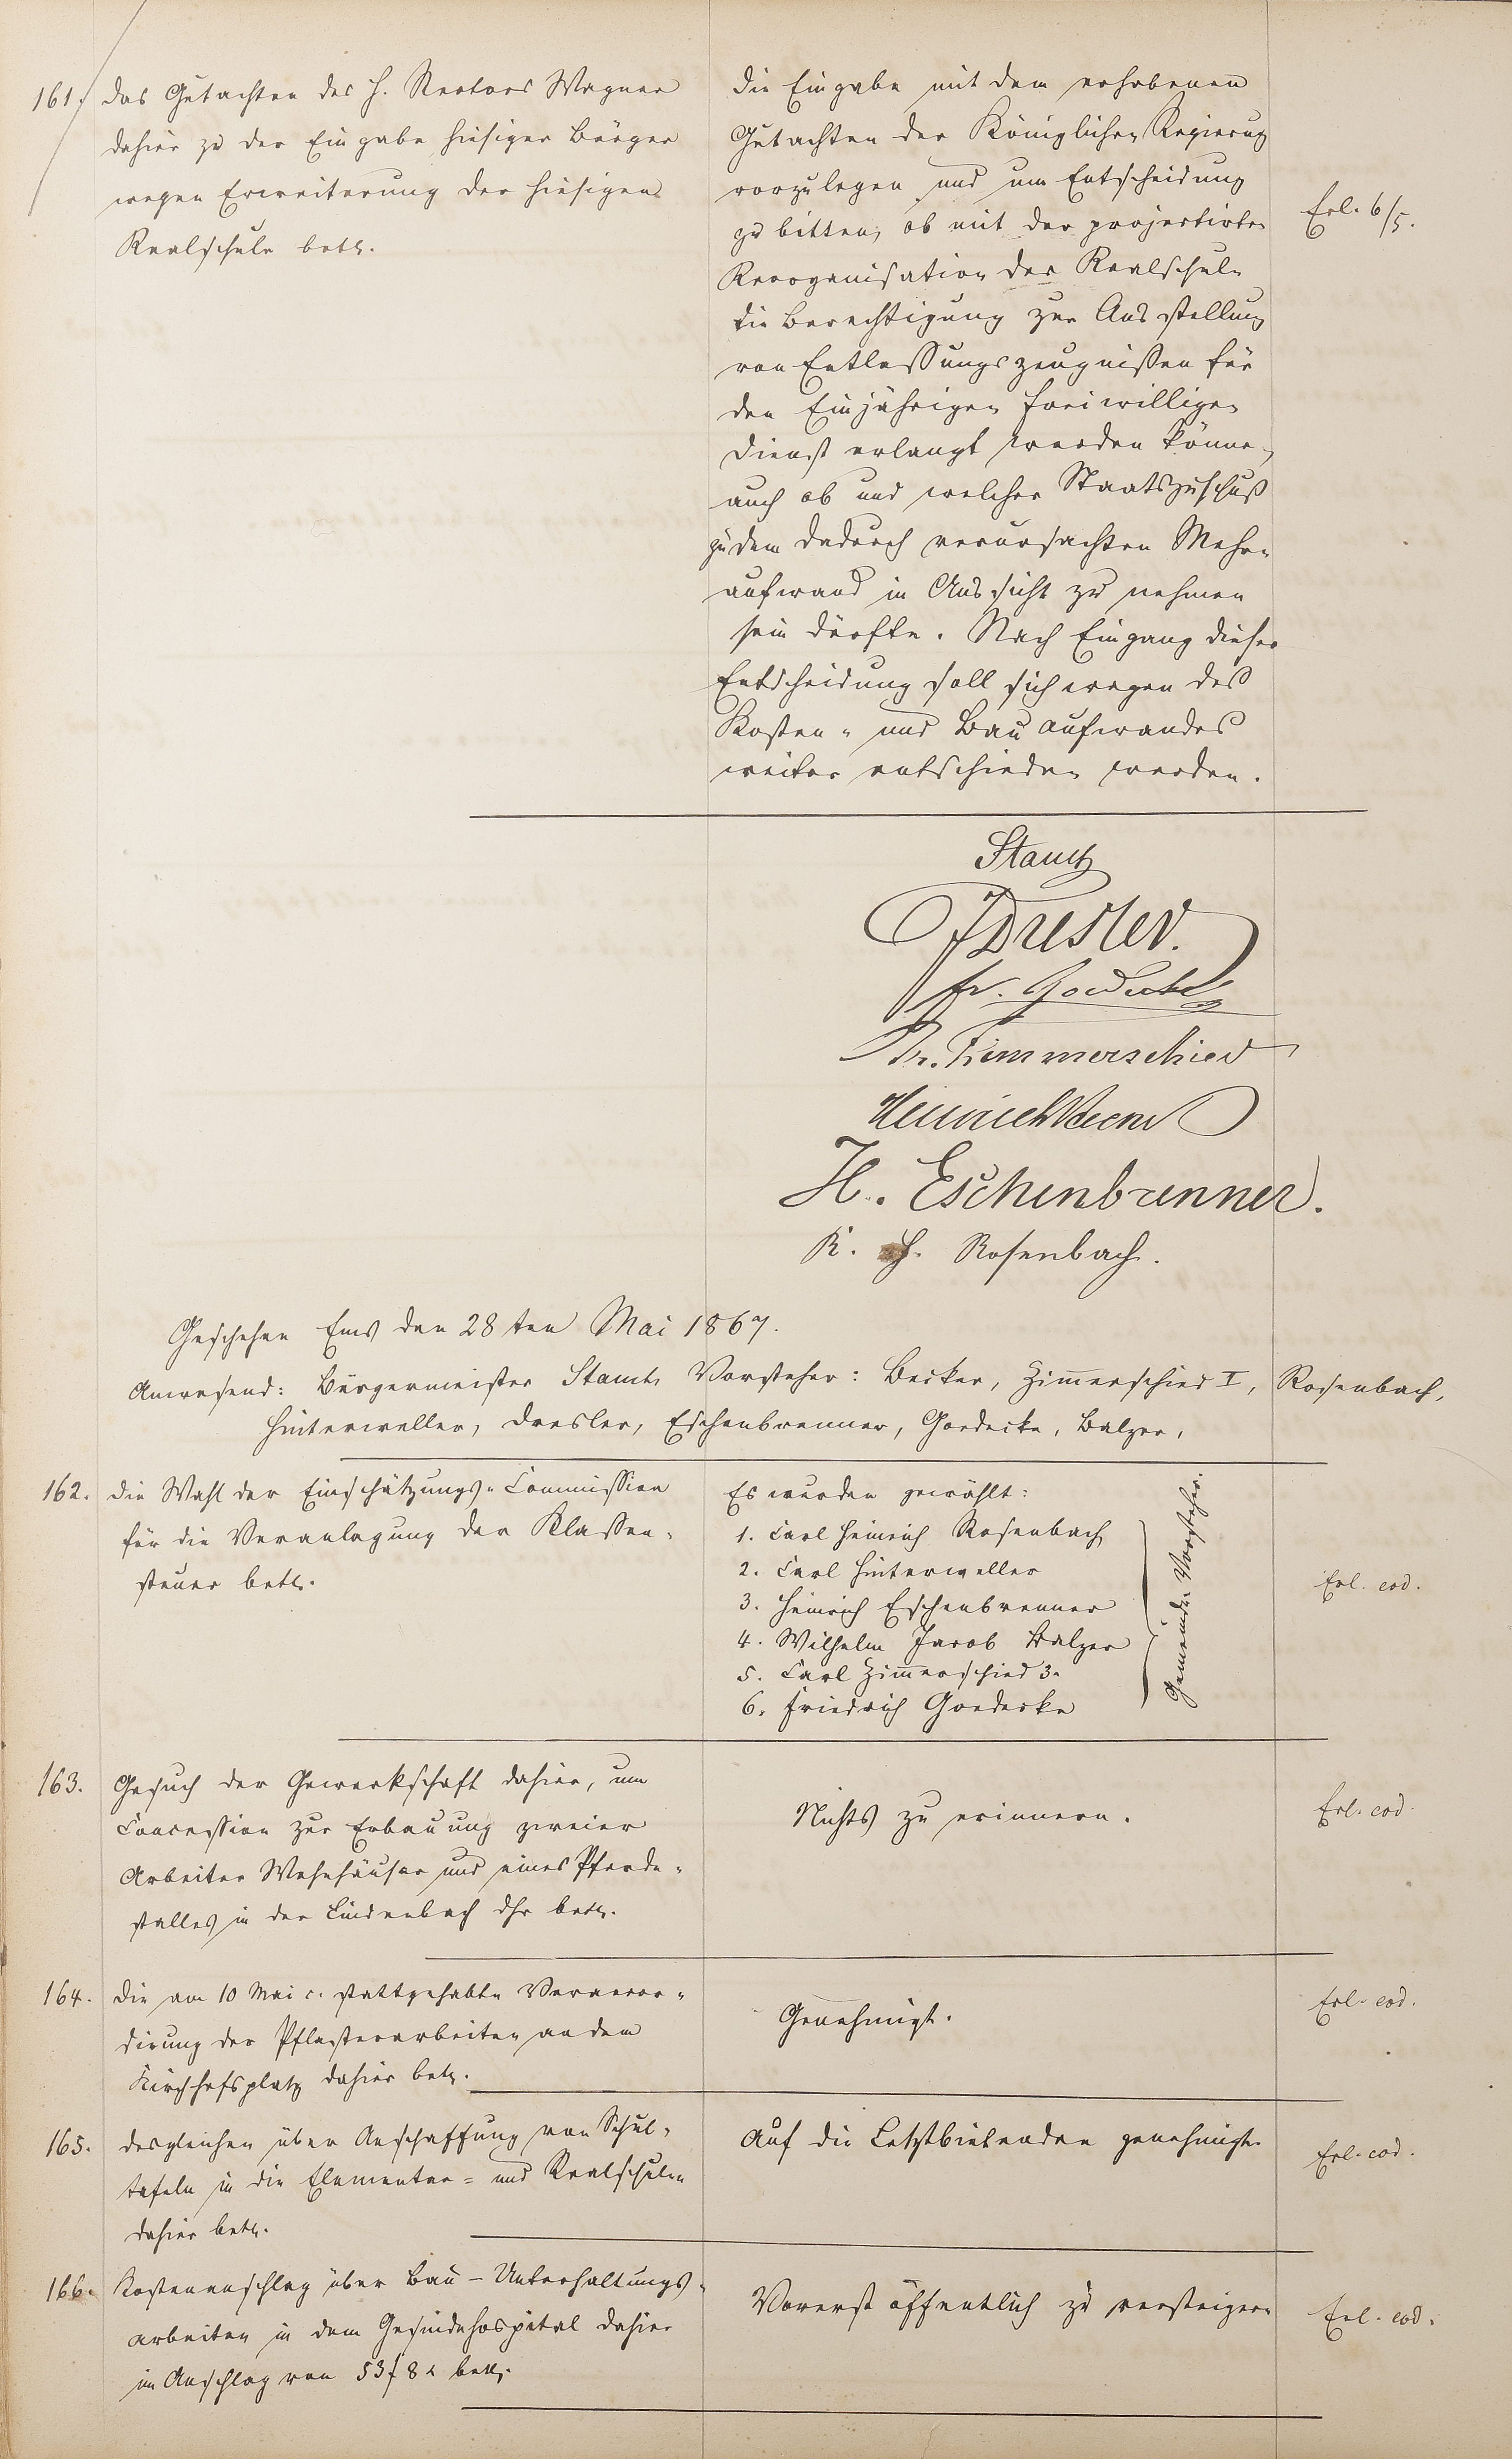 161. Das Gutachten des H. Rectors Wagner
dahier zu der Eingabe hiesiger Bürger
wegen Erweiterung der hiesigen
Realschule betr.
Die Eingabe mit dem erhobenen
Gutachten der Königlichen Regierung
vorzulegen und um Entscheidung
zu bitten, ob mit der projectirten
Reorganisation der Realschule
die Berechtigung zur Ausstellung
von Entlassungszeugnissen für
den Einjährigen freiwilligen
Dienst erlangt werden könne,
auch ob und welcher Staatszuschuß
zu dem dadurch verursachten Mehr-
aufwand in Aussicht zu nehmen
sein dürfte. Nach Eingang dieser
Entscheidung soll sich wegen des
Kosten- und Bauaufwandes
weiter entschieden werden.
Erl. 6/5.
Stamth
Dresler.
Fr. Goedecke
Zimmerschied
Heinrich
H. Eschenbrenner.
K. H. Rosenbach.
Geschehen Ems den 28ten Mai 1867.
Anwesend: Bürgermeister Stamth Vorsteher: Becker, Zimmerschied I, Rosenbach,
Hinterweller, Dresler, Eschenbrenner, Goedecke, Balzer,
162. Die Wahl der Einschätzungs-Commission
für die Veranlagung der Klassen-
steuer betr.
Es wurden gewählt:
1. Carl Heinrich Rosenbach
2. Carl Hinterweller
3. Heinrich Eschenbrenner
4. Wilhelm Jacob Balzer
5. Carl Zimmerschied 3.
6. Friedrich Goedecke
Gemeinde Vorsteher.
Erl. eod.
163. Gesuch der Gewerkschaft dahier, um
Concession zur Erbauung zweier
Arbeiter Wohnhäuser und eines Pferde-
stalles in der Lindenbach dhr betr.
Nichts zu erinnern.
Erl. eod.
164. Die am 10 Mai c. stattgehabte Veraccor-
dirung der Pflasterarbeiten an dem
Kirchhofsplatz dahier betr.
Genehmigt.
Erl. eod.
165. Desgleichen über Anschaffung von Schul-
tafeln in die Elementar- und Realschulen
dahier betr.
Auf die Letztbietenden genehmigt.
Erl. eod.
166. Kostenanschlag über Bau-Unterhaltungs-
arbeiten in dem Gesindehospital dahier
im Anschlag von 53 f 8 x betr.
Vorerst öffentlich zu versteigern
Erl. eod.